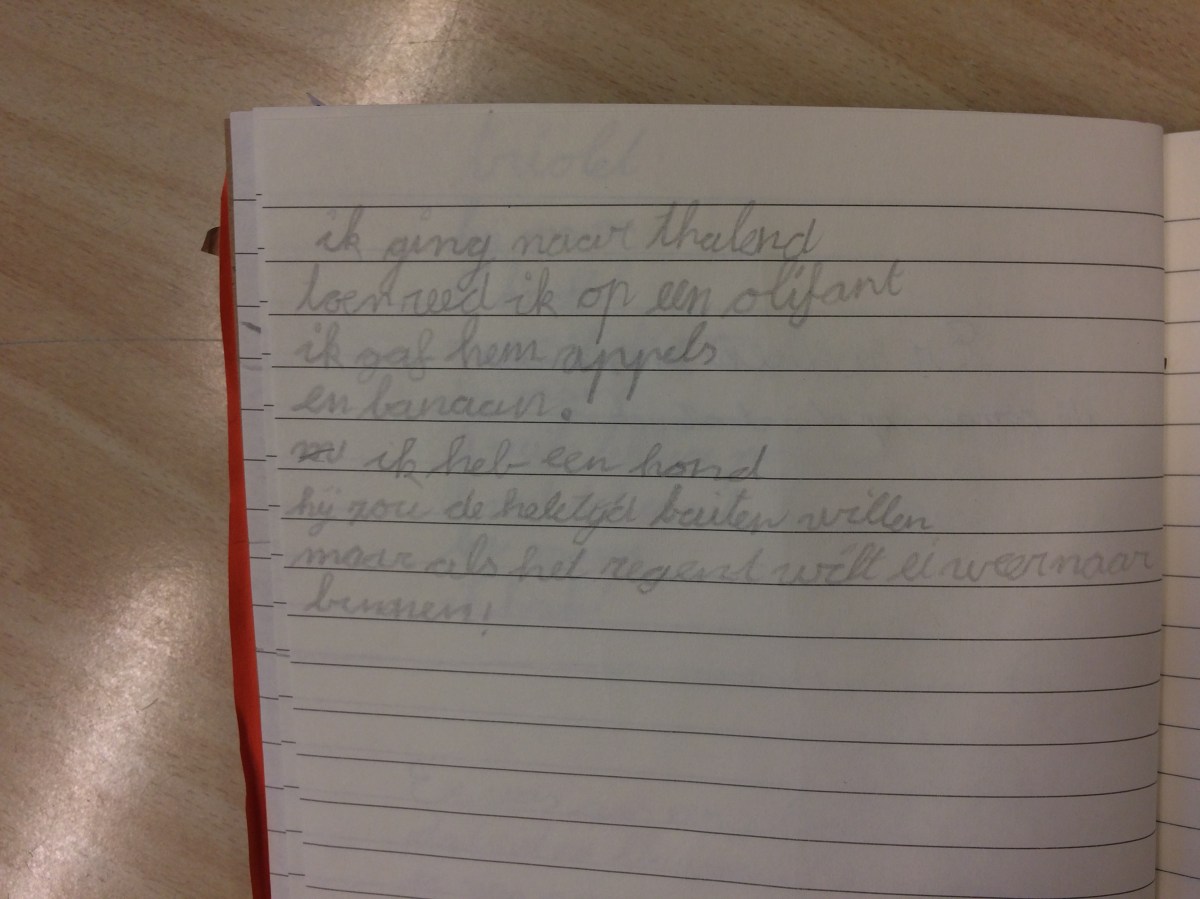 ik ging naar thalend
toen reed ik op een olifant
ik gaf hem appels
en banaan.
ik heb een hond
hij zou de heletijd buiten willen
maar als het regent wilt ei weer naar
binnen!